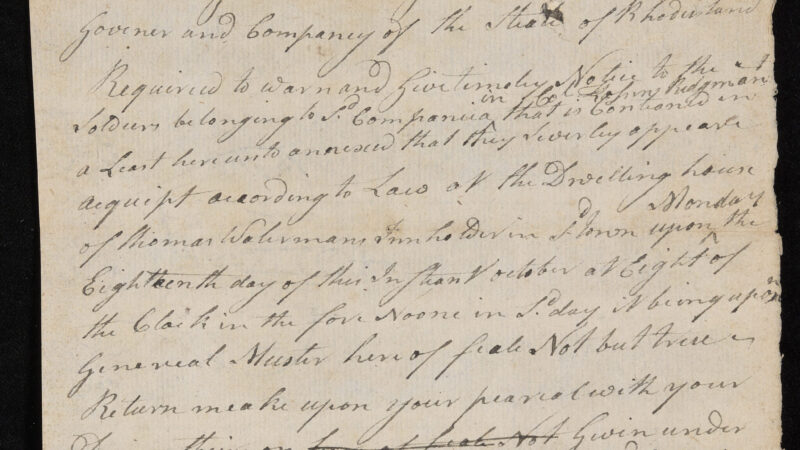 Govener and Company of the State of Rhodisland
Required to warn and Give timely Notice to the
in Col John Ridgman
Soldiers belonging to Sd Compania that is Contained in
a Least hereunto annexed that they Severley appeare
acquipt according to Law at the Dwelling house
of thomas Watermans Innholder in Sd town upon Monday the
Eighteenth day of this Instant october at Eight of
the Clock in the fore Noone in Sd day it being upon
Genereal Muster here of feale Not but trese
Return meake upon your peareol with your
Givin under